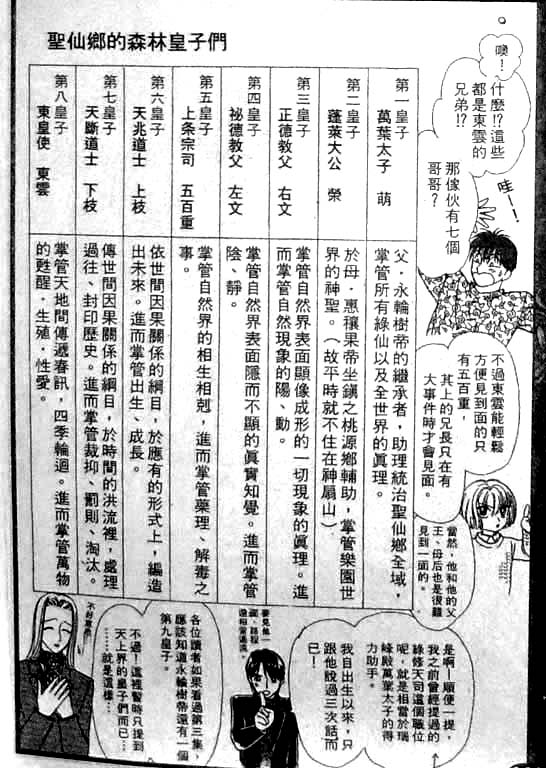 聖仙鄉的森林皇子們
噢！
什麼!?這些
都是東雲的
兄弟!?
哇--!!
那傢伙有七個
哥哥？
第一皇子
萬葉太子 萌
父・永輪樹帝的繼承者，助理統治聖仙鄉全域，
掌管所有綠仙以及全世界的真理。
第二皇子
蓬萊大公 榮
於母・惠穰果帝坐鎮之桃源鄉輔助，掌管樂園世
界的神聖。（故平時就不住在神扇山）
第三皇子
正德教父 右文
掌管自然界表面顯像成形的一切現象的真理。進
而掌管自然現象的陽、動。
第四皇子
祕德教父 左文
掌管自然界表面隱而不顯的真實知覺。進而掌管
陰、靜。
第五皇子
上条宗司 五百重
掌管自然界的相生相剋，進而掌管藥理、解毒之
事。
第六皇子
天兆道士 上枝
依世間因果關係的綱目，於應有的形式上，編造
出未來。進而掌管出生、成長。
第七皇子
天斷道士 下枝
傳世間因果關係的綱目，於時間的洪流裡，處理
過往、封印歷史。進而掌管裁抑、罰則、淘汰。
第八皇子
東皇使 東雲
掌管天地間傳遞春訊，四季輪迴。進而掌管萬物
的甦醒・生殖・性愛。
不過東雲能輕鬆
方便見到面的只
有五百重，
其上的兄長只在有
大事件時才會見面。
當然，他和他的父
王、母后也是很難
見到一面的。
是啊！順便一提，
我之前曾經提過的
綠修天司這個職位
呢，就是相當於瑞
緣殿萬葉太子的得
力助手。
我自出生以來，只
跟他說過三次話而
已！
要見他一
面，路程
還相當遙遠。
各位讀者如果看過第三集，
應該知道永輪樹帝還有一個
第九皇子。
不過！這裡暫時只提到
天上界的皇子們而已…
……就是這樣……
不好意思！